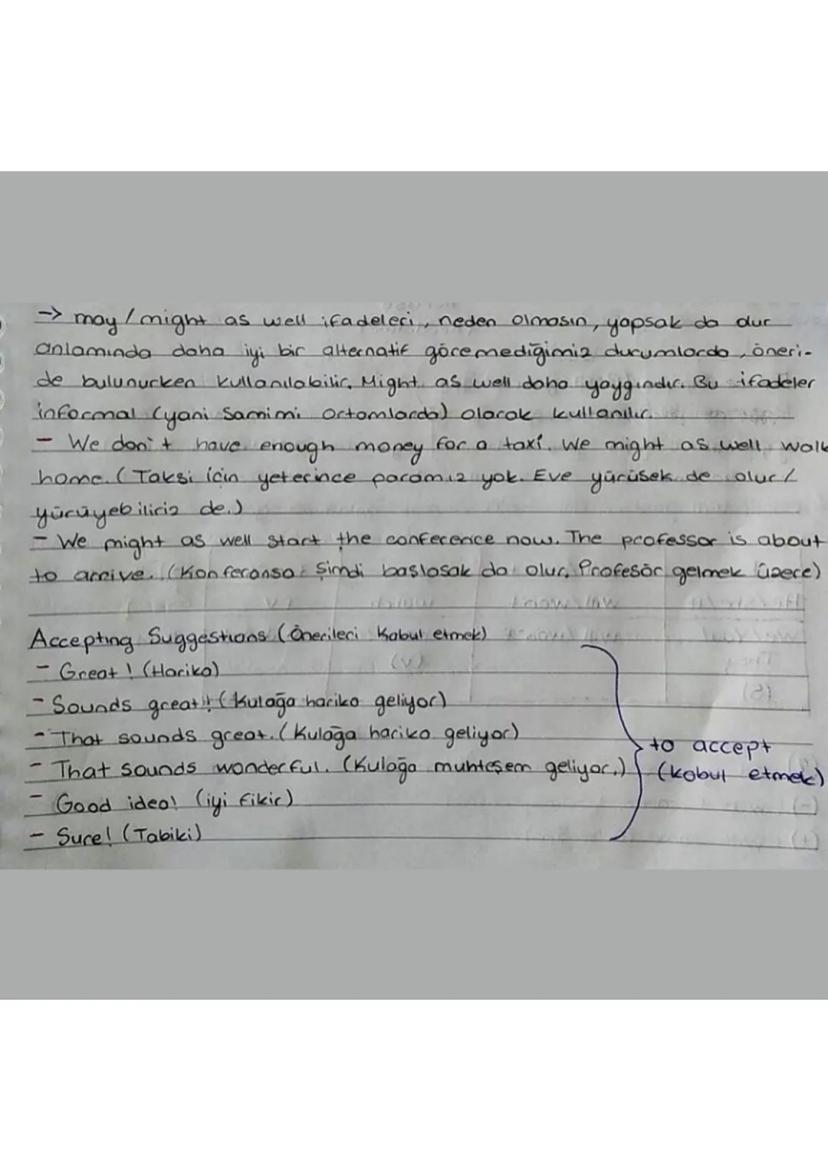 → may / might as well ifadeleri, neden olmasın, yapsak da olur
anlamında daha iyi bir alternatif göremediğimiz durumlarda, öneri-
de bulunurken kullanılabilir. Might as well daha yaygındır. Bu ifadeler
informal (yani samimi ortamlarda) olarak kullanılır.
- We don't have enough money for a taxi. We might as well walk
home. (Taksi için yeterince paramız yok. Eve yürüsek de olur /
yürüyebiliriz de.)
- We might as well start the conference now. The professor is about
to arrive. (Konferansa şimdi başlasak da olur. Profesör gelmek üzere)
Accepting Suggestions (Önerileri kabul etmek)
- Great! (Harika)
- Sounds great! (Kulağa harika geliyor)
- That sounds great. (Kulağa harika geliyor)
- That sounds wonderful. (Kulağa muhteşem geliyor.)
- Good idea! (iyi fikir)
- Sure! (Tabiki)
to accept
(kabul etmek)